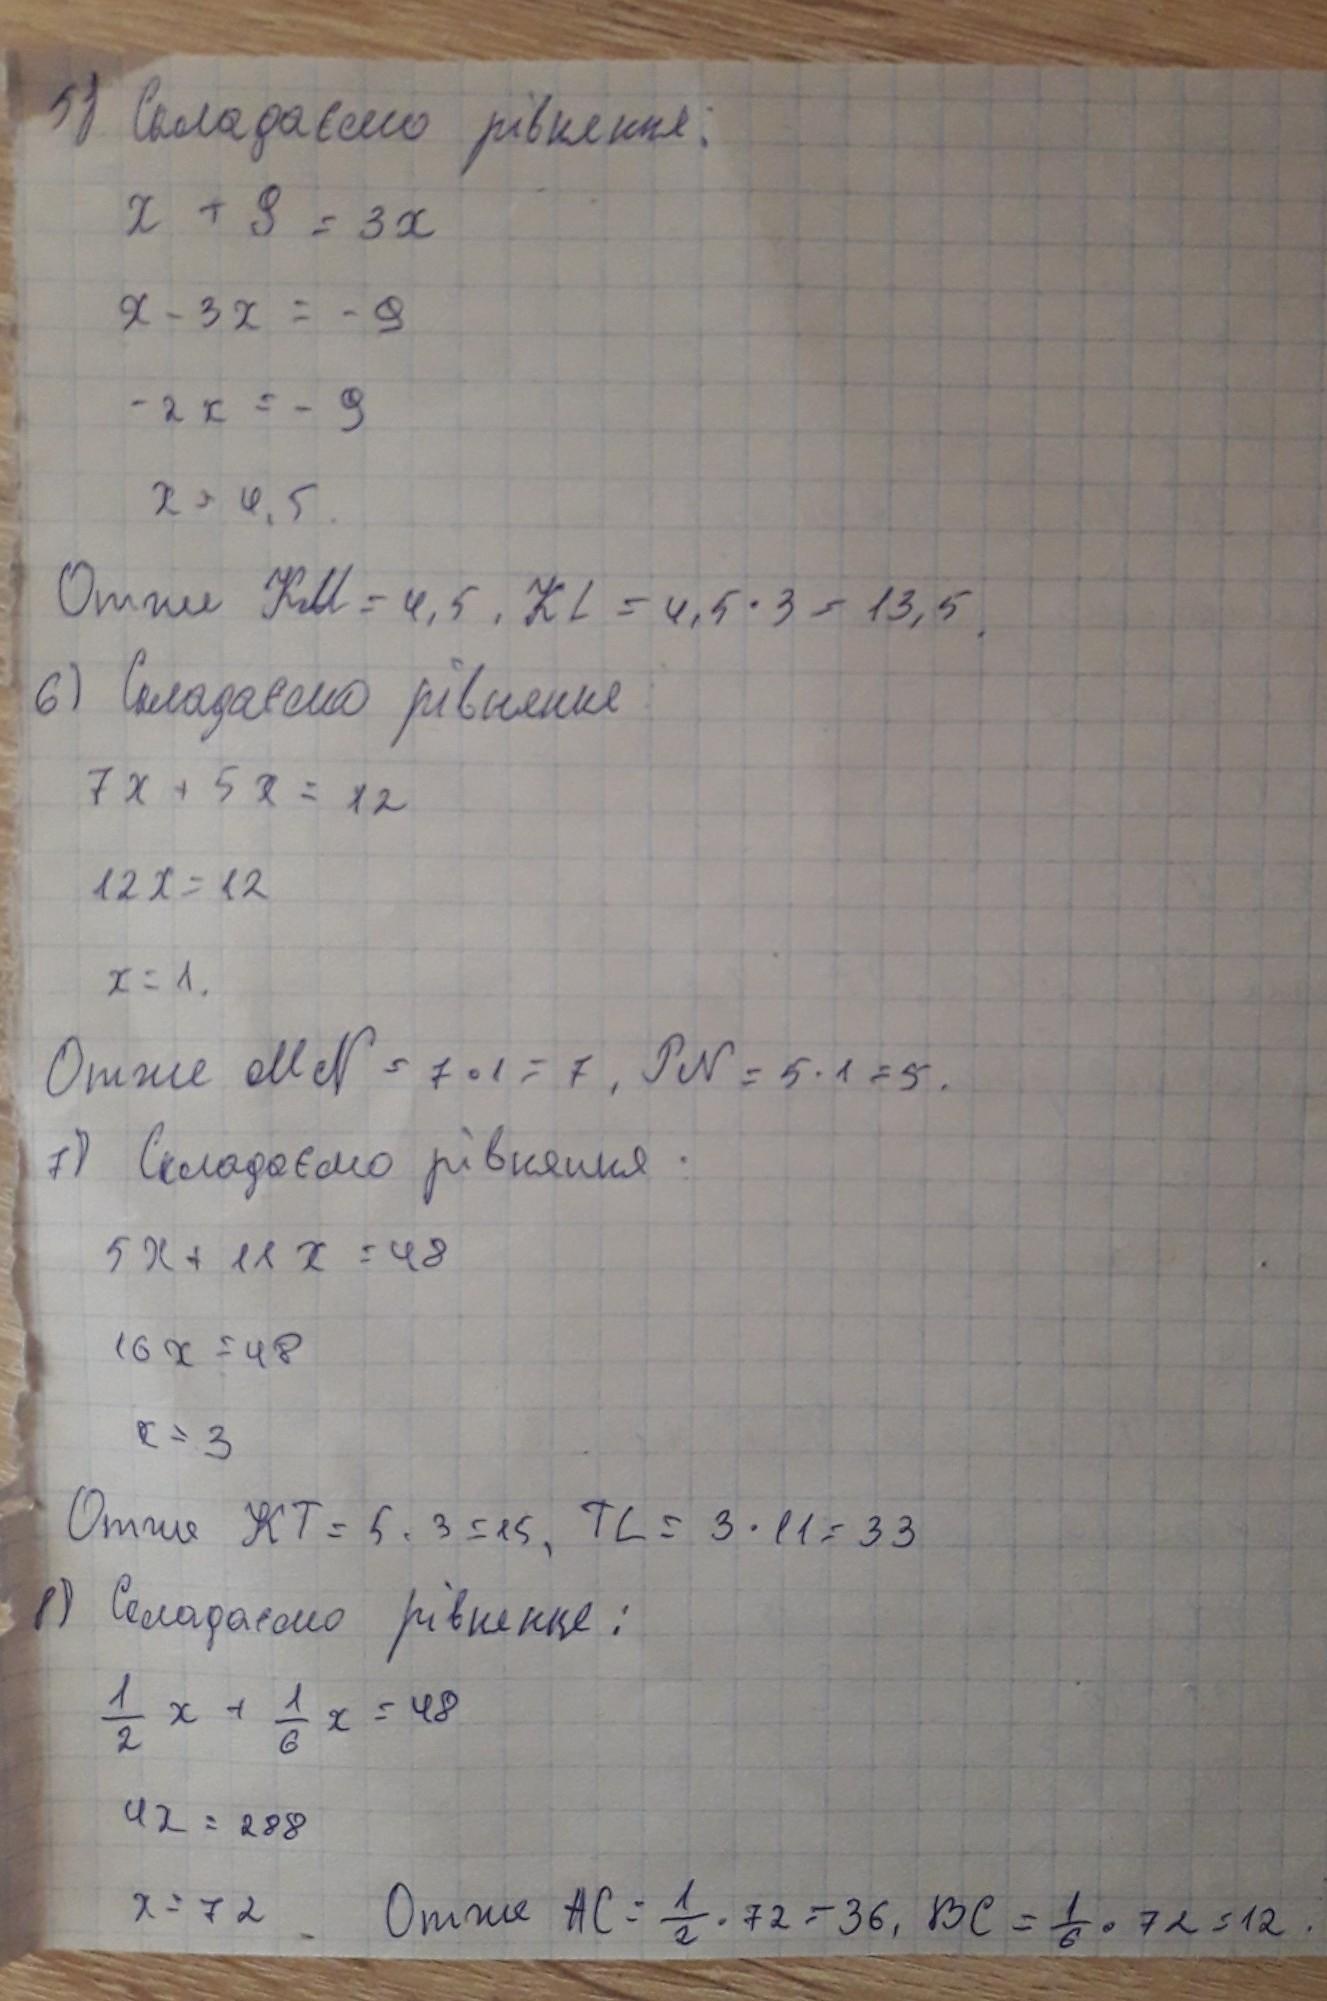 5) Складаємо рівняння:
x + 9 = 3x
x - 3x = - 9
-2x = - 9
x = 4,5.
Отже KM = 4,5, KL = 4,5 · 3 = 13,5.
6) Складаємо рівняння
7x + 5x = 12
12x = 12
x = 1.
Отже MN = 7 · 1 = 7, PN = 5 · 1 = 5.
7) Складаємо рівняння:
5x + 11x = 48
16x = 48
x = 3
Отже KT = 5 · 3 = 15, TL = 3 · 11 = 33
8) Складаємо рівняння:
1/2 x + 1/6 x = 48
4x = 288
x = 72 Отже AC = 1/2 · 72 = 36, BC = 1/6 · 72 = 12.